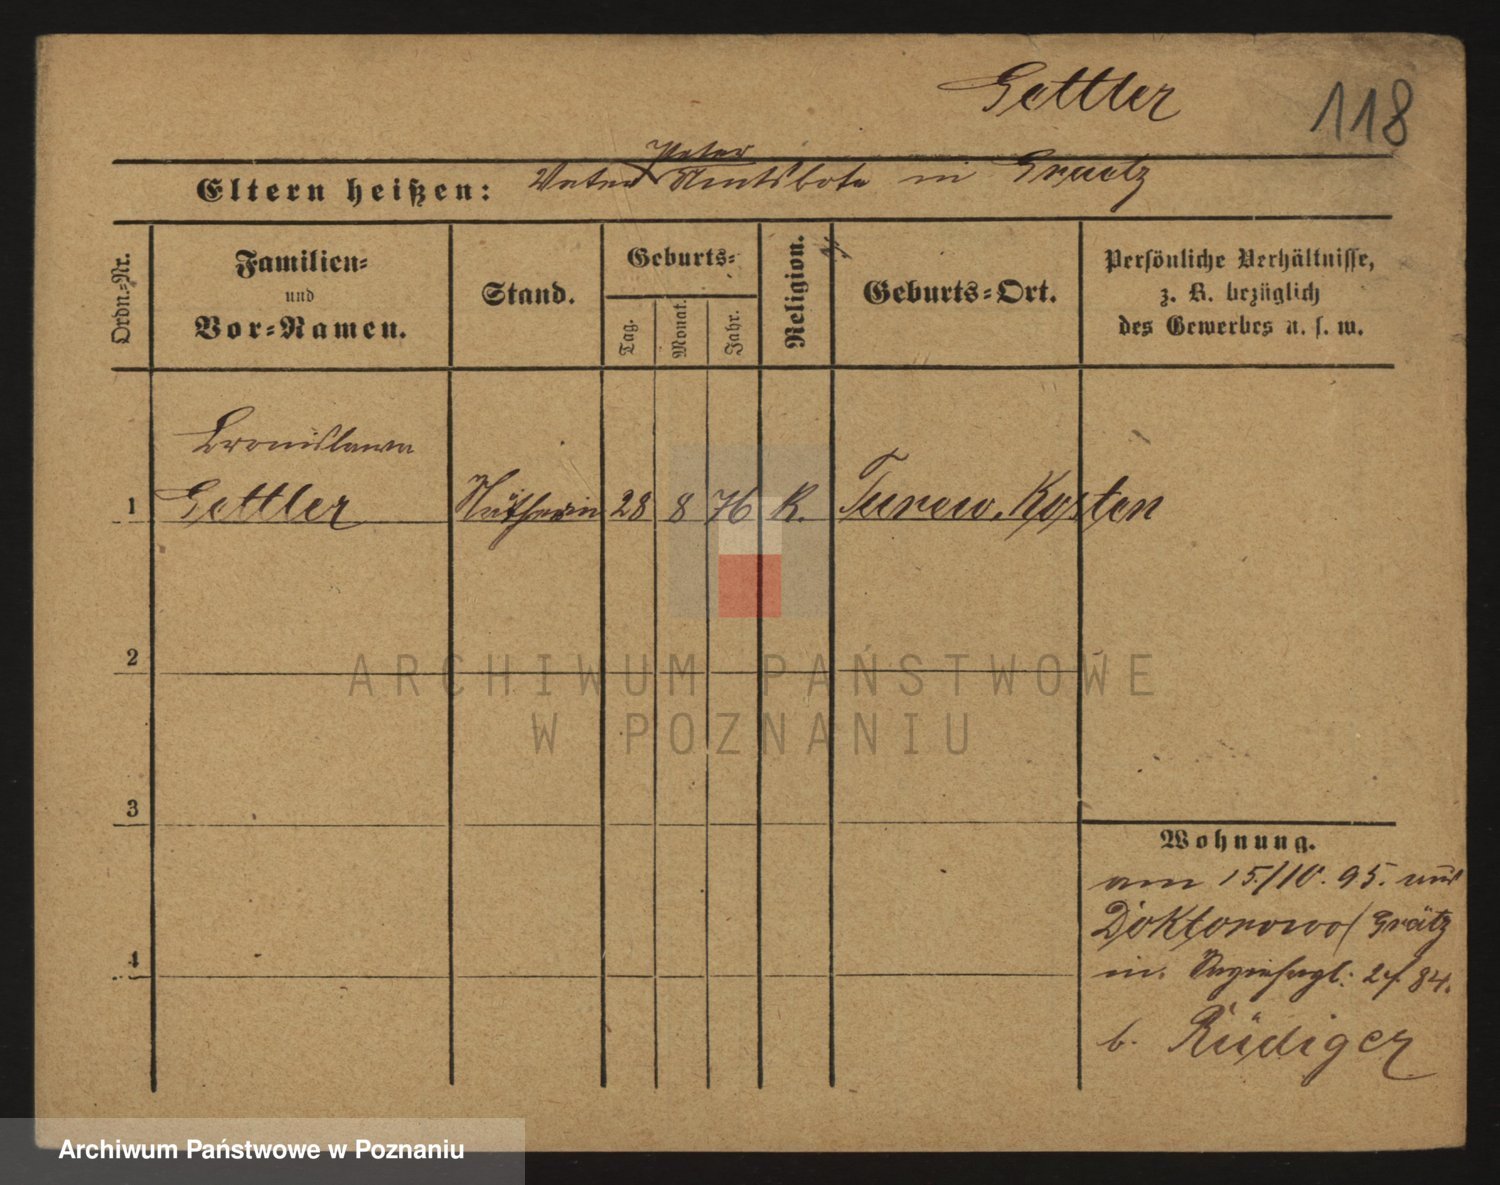 Gettler
118
Peter
Eltern heißen: Vater Amtsbote in Graetz
Ordn.-Nr.
Familien-
und
Vor-Namen.
Stand.
Geburts-
Tag.
Monat.
Jahr.
Religion.
Geburts-Ort.
Persönliche Verhältnisse,
z. B. bezüglich
des Gewerbes u. s. w.
Bronislawa
1 Gettler Nätherin 28 8 76 K. Turew. Kosten
2
ARCHIWUM PAŃSTWOWE
W POZNANIU
3
Wohnung.
am 15./10. 95. aus
Doktorowo/Grätz
4
in 84.
b. Rüdiger
Archiwum Państwowe w Poznaniu